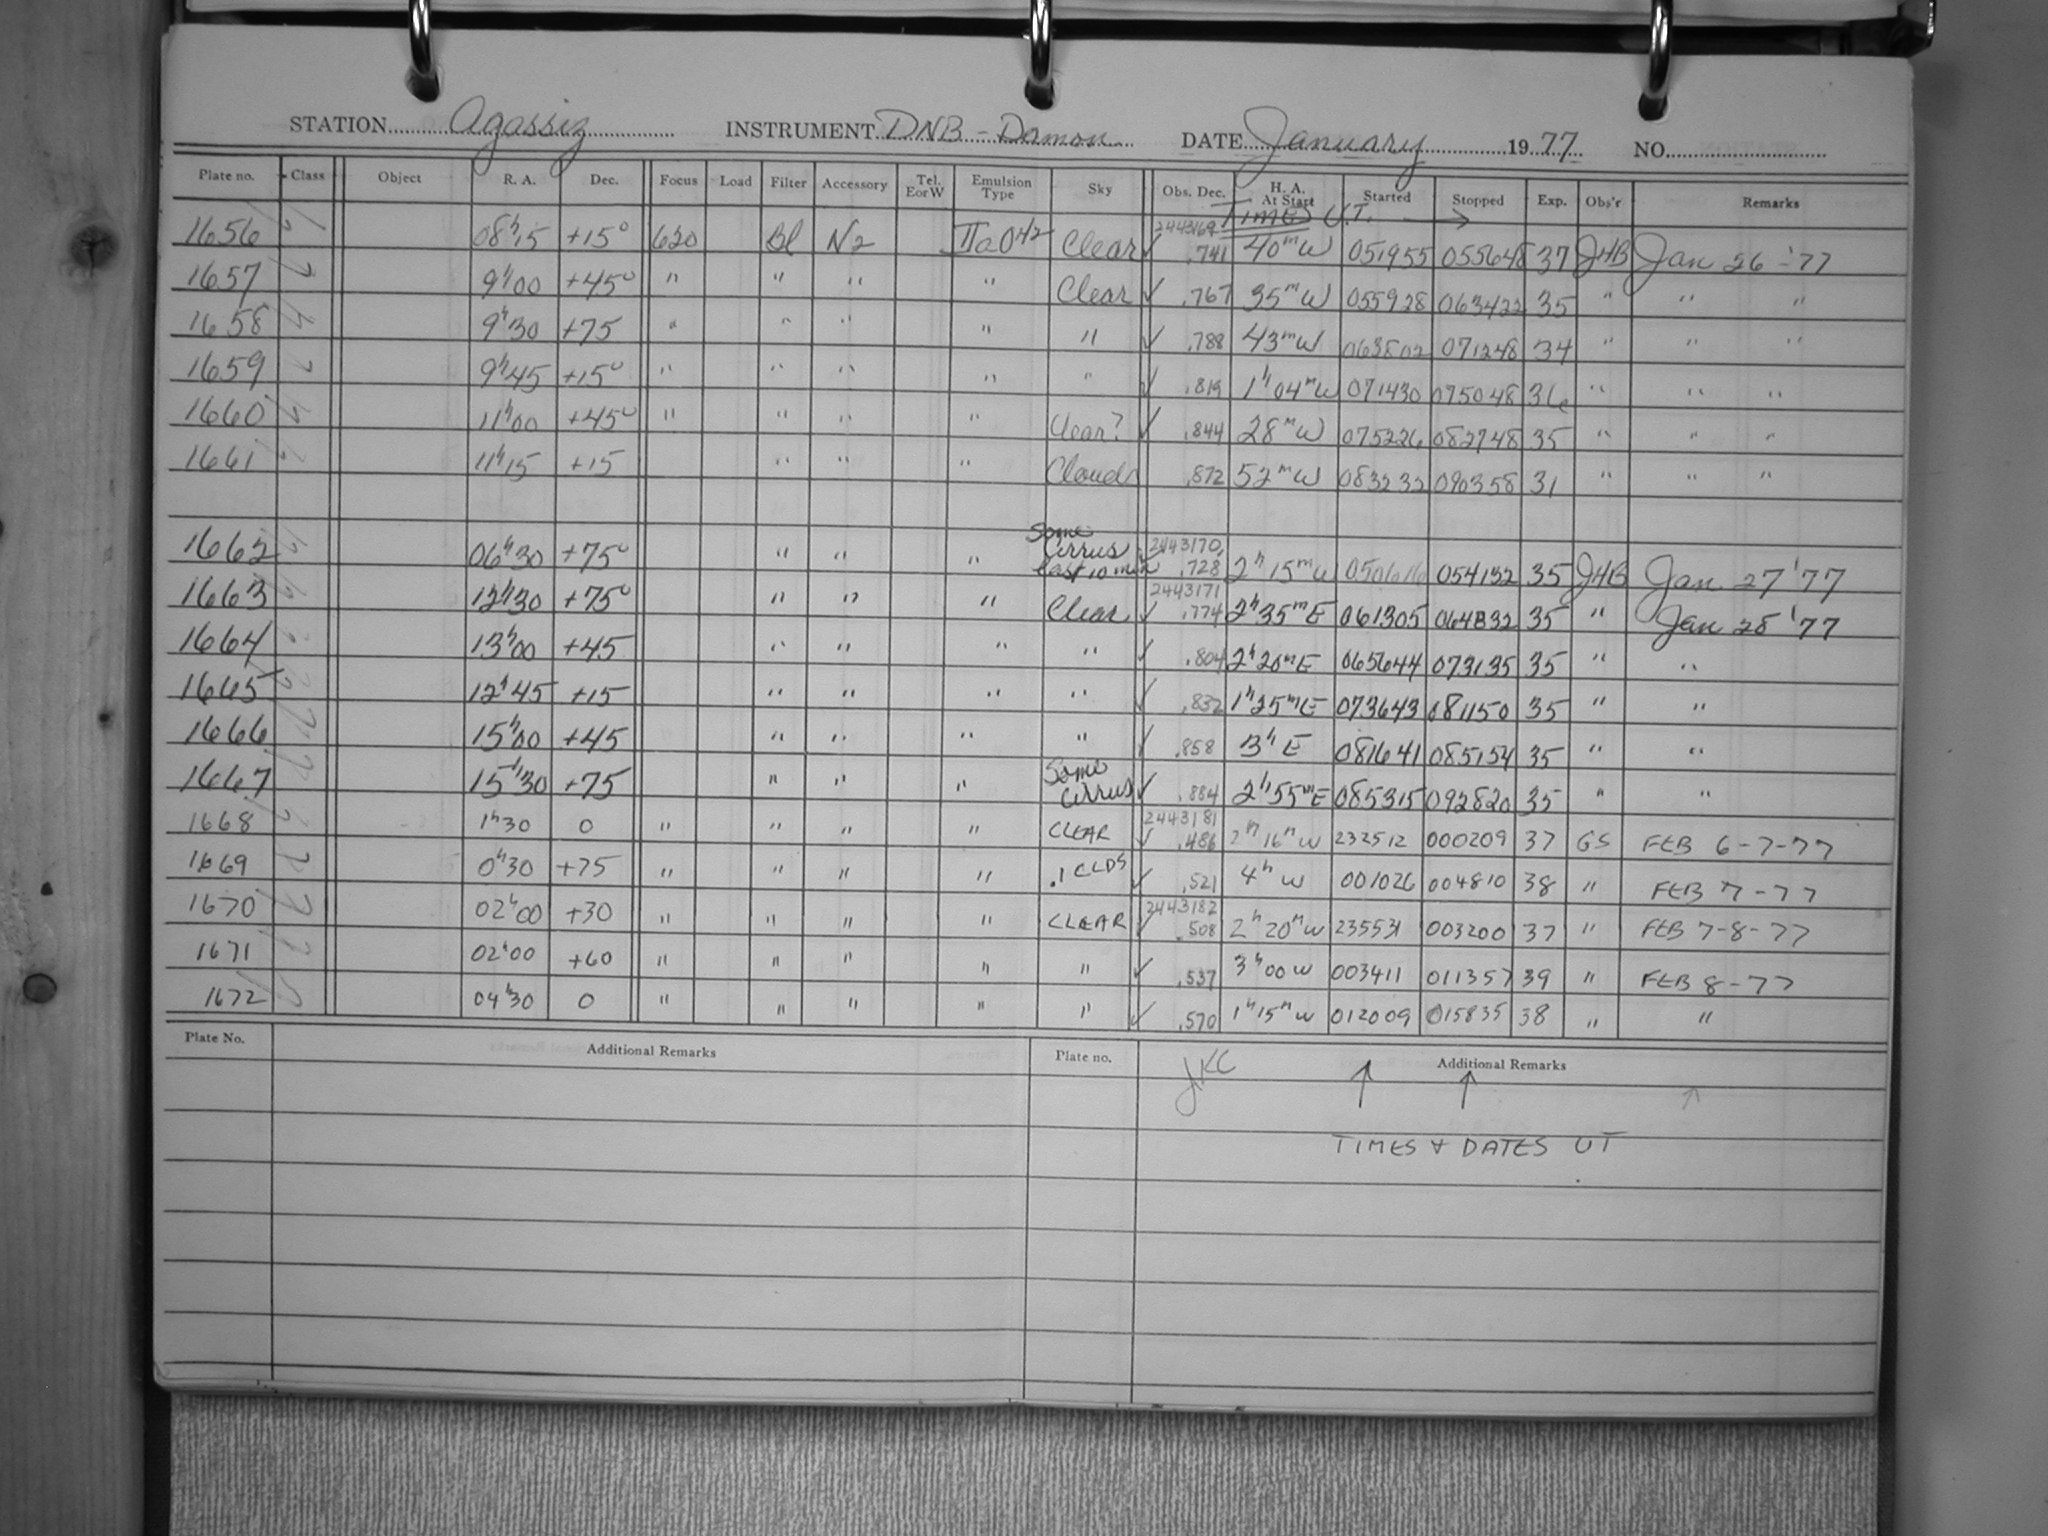 STATION Agassiz INSTRUMENT DNB - Damon DATE January 1977 NO.
Plate no. Class Object R. A. Dec. Focus Load Filter Accessory Tel. E or W Emulsion Type Sky Obs. Dec. H. A. At Start Started Stopped Exp. Obs'r Remarks
TIMES U.T. →
1656 08h15 +15° 620 Bl N2 IIaO H2 Clear ✓ 2443169 .741 40m W 051955 055648 37 JHB Jan 26 - '77
1657 9h00 +45° " " " " Clear ✓ .767 35m W 055928 063422 35 " " "
1658 9h30 +75 " " " " " ✓ .788 43m W 063802 071248 34 " " "
1659 9h45 +15° " " " " " ✓ .819 1h04m W 071430 075048 36 " " "
1660 11h00 +45° " " " " Clear? ✓ .844 28m W 075226 082748 35 " " "
1661 11h15 +15 " " " Clouds .872 52m W 083232 090358 31 " " "
1662 06h30 +75° " " " Some cirrus last 10 min ✓ 2443170. .728 2h 15m W 050616 054132 35 JHB Jan 27 '77
1663 12h30 +75° " " " Clear ✓ 2443171 .774 2h35m E 061305 064832 35 " Jan 28 '77
1664 13h00 +45 " " " " ✓ .804 2h20m E 065644 073135 35 " "
1665 12h45 +15 " " " " ✓ .832 1h25m E 073643 081150 35 " "
1666 15h00 +45 " " " " ✓ .858 3h E 081641 085154 35 " "
1667 15h30 +75 " " " Some cirrus ✓ .884 2h55m E 085315 092820 35 " "
1668 1h30 0 " " " " CLEAR ✓ 2443181 .486 2h 16m W 232512 000209 37 GS FEB 6-7-77
1669 0h30 +75 " " " " .1 CLDS ✓ .521 4h W 001026 004810 38 " FEB 7-77
1670 02h00 +30 " " " " CLEAR ✓ 2443182 .508 2h 20m W 235531 003200 37 " FEB 7-8-77
1671 02h00 +60 " " " " " ✓ .537 3h00 W 003411 011357 39 " FEB 8-77
1672 04h30 0 " " " " " ✓ .570 1h15m W 012009 015835 38 " "
Plate No. Additional Remarks Plate no. Additional Remarks
JKC ↑ ↑ ↑
TIMES & DATES UT